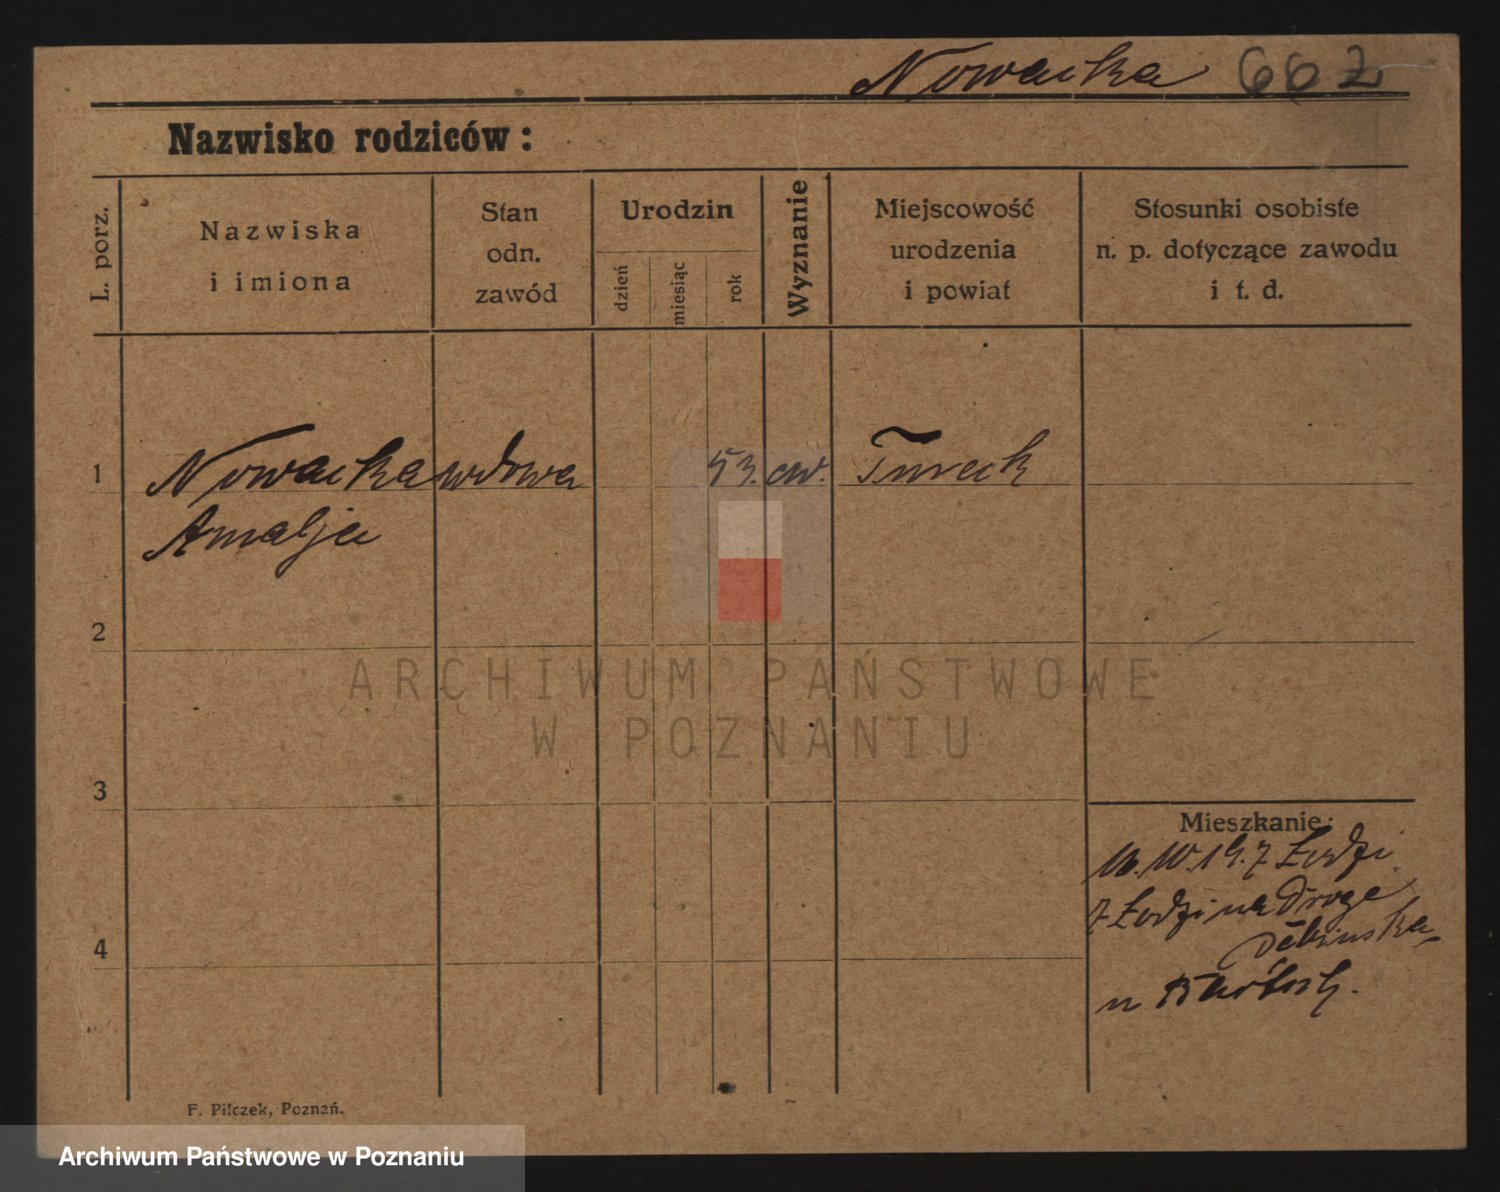 Nowacka 662
Nazwisko rodziców:
L. porz.
Nazwiska
i imiona
Stan
odn.
zawód
Urodzin
dzień
miesiąc
rok
Wyznanie
Miejscowość
urodzenia
i powiat
Stosunki osobiste
n. p. dotyczące zawodu
i t. d.
1 Nowacka wdowa 53. ew. Tureck
Amalja
2
ARCHIWUM PAŃSTWOWE
W POZNANIU
3
Mieszkanie:
19. z Łodzi
z Łodzi na Droge
Dębinska
u
4
F. Pilczek, Poznań.
Archiwum Państwowe w Poznaniu